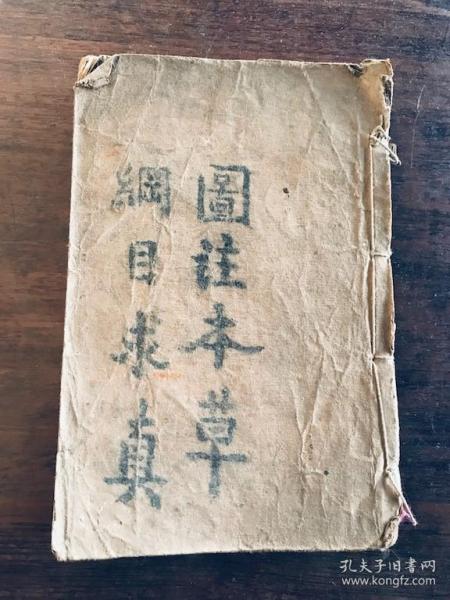 圖注本草
綱目求真
孔夫子旧书网
www.kongfz.com